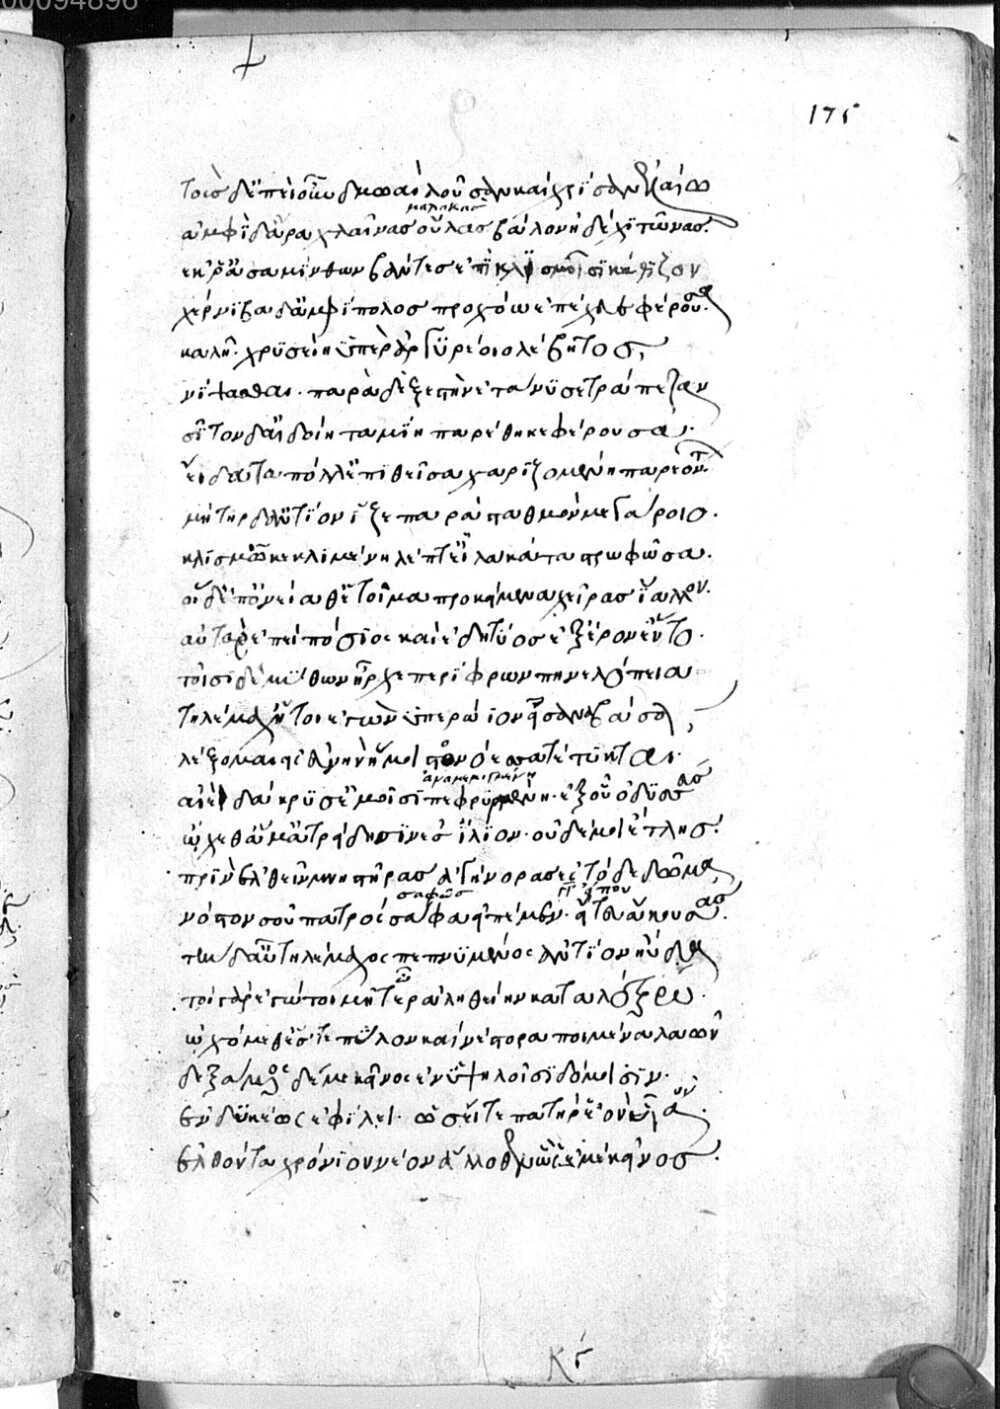 00094896
175
τοὺς δ' ἐπεὶ οὖν δμωαὶ λοῦσαν καὶ χρῖσαν ἐλαίω
μαλακὰς
ἀμφὶ δ' ἄρα χλαίνας οὔλας βάλον ἠδὲ χιτῶνας.
ἐκ ῥ' ἀσαμίνθων βάντες ἐπὶ κλισμοῖσι κάθιζον
χέρνιβα δ' ἀμφίπολος προχόω ἐπέχευε φέρουσα.
καλῆ. χρυσείη ὑπὲρ ἀργυρέοιο λέβητος,
νίψασθαι. παρὰ δὲ ξεστὴν ἐτάνυσε τράπεζαν
σῖτον δ' αἰδοίη ταμίη παρέθηκε φέρουσα.
εἴδατα πόλλ' ἐπιθεῖσα χαριζομένη παρεόντων.
μήτηρ δ' ἀντίον ἷζε παρὰ σταθμὸν μεγάροιο.
κλισμῶ κεκλιμένη λέπτ' ἠλάκατα στρωφῶσα.
οἱ δ' ἐπ' ὀνείαθ' ἑτοῖμα προκείμενα χεῖρας ἴαλλον.
αὐτὰρ ἐπεὶ πόσιος καὶ ἐδητύος ἐξ ἔρον ἕντο.
τοῖσι δὲ μύθων ἦρχε περίφρων πηνελόπεια
τηλέμαχ' ἤτοι ἐγὼν ὑπερώϊον εἰσαναβᾶσα,
λέξομαι εἰς εὐνὴν ἥ μοι στονόεσσα τέτυκται.
ἀναμεμιγμένη
αἰεὶ δάκρυσ' ἐμοῖσι πεφυρμένη. ἐξ οὗ ὀδυσσεὺς
ὤχεθ' ἅμ' ἀτρείδησιν ἐς ἴλιον. οὐδέ μοι ἔτλης.
πρὶν ἐλθεῖν μνηστῆρας ἀγήνορας ἐς τόδε δῶμα
σαφῶς που
νόστον σοῦ πατρὸς σάφα εἰπέμεν. εἴ που ἄκουσας.
τὴν δ' αὖ τηλέμαχος πεπνυμένος ἀντίον ηὔδα
τοιγὰρ ἐγώ τοι μῆτερ ἀληθείην καταλέξω.
ὠχόμεθ' ἔς τε πύλον καὶ νέστορα ποιμένα λαῶν
δεξάμενος δέ με κεῖνος ἐν ὑψηλοῖσι δόμοισιν.
ἐνδυκέως ἐφίλει. ὡσεί τε πατὴρ ἑὸν υἱὸν.
ἐλθόντα χρόνιον νέον ἄλλοθεν ὣς ἐμὲ κεῖνος.
κϛ